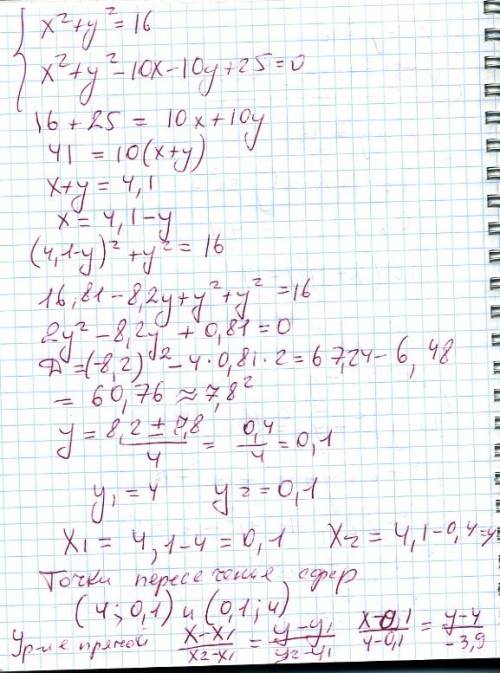 x²+y²=16
x²+y²-10x-10y+25=0
16+25 = 10x+10y
41 = 10(x+y)
x+y = 4,1
x = 4,1-y
(4,1-y)²+y² = 16
16,81-8,2y+y²+y² = 16
2y²-8,2y+0,81=0
D=(-8,2)²-4·0,81·2=67,24-6,48
= 60,76 ≈ 7,8²
y = (8,2 ± 7,8)/4 = 0,4/4 = 0,1
y₁ = 4 y₂ = 0,1
x₁ = 4,1-4 = 0,1 x₂ = 4,1-0,4=4
Точки пересечения сфер
(4; 0,1) и (0,1; 4)
Ур-ие прямой (x-x₁)/(x₂-x₁) = (y-y₁)/(y₂-y₁) (x-0,1)/(4-0,1) = (y-4)/(-3,9)